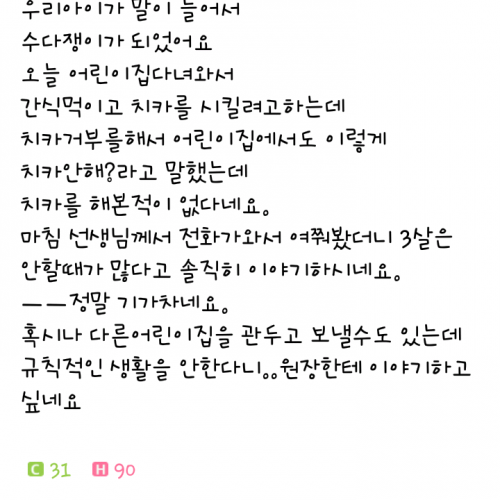 우리아이가 말이 늘어서
수다쟁이가 되었어요
오늘 어린이집다녀와서
간식먹이고 치카를 시킬려고하는데
치카거부를해서 어린이집에서도 이렇게
치카안해?라고 말했는데
치카를 해본적이 없다네요.
마침 선생님께서 전화가와서 여쭤봤더니 3살은
안할때가 많다고 솔직히 이야기하시네요.
ㅡㅡ정말 기가차네요.
혹시나 다른어린이집을 관두고 보낼수도 있는데
규칙적인 생활을 안한다니..원장한테 이야기하고
싶네요
C 31 H 90